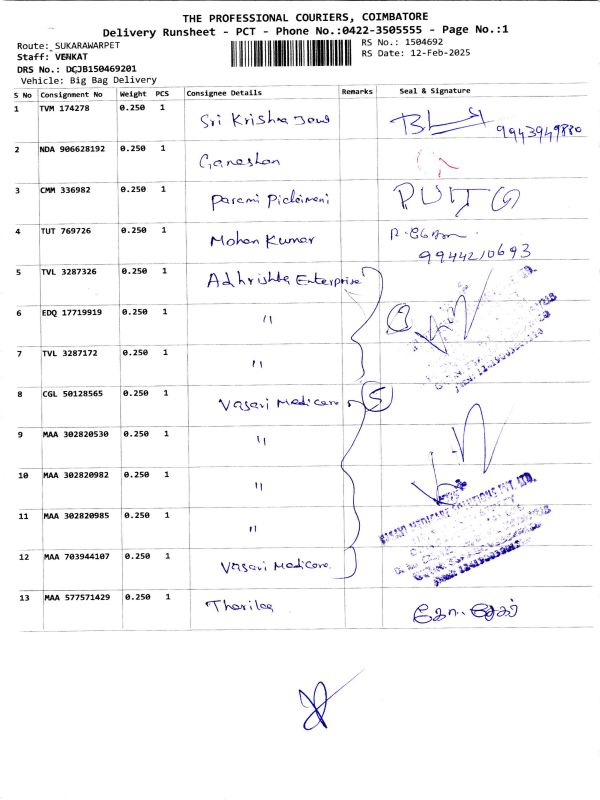 THE PROFESSIONAL COURIERS, COIMBATORE
Delivery Runsheet - PCT - Phone No.:0422-3505555 - Page No.:1
Route: SUKARAWARPET
RS No.: 1504692
Staff: VENKAT
RS Date: 12-Feb-2025
DRS No.: DCJB150469201
Vehicle: Big Bag Delivery
S No Consignment No Weight PCS Consignee Details Remarks Seal & Signature
1 TVM 174278 0.250 1 Sri Krishna 9943949880
2 NDA 906628192 0.250 1 Ganeshan
3 CMM 336982 0.250 1
4 TUT 769726 0.250 1 Mohan Kumar
9944210693
5 TVL 3287326 0.250 1 Adhrishta Enterprise
6 EDQ 17719919 0.250 1 "
7 TVL 3287172 0.250 1 "
8 CGL 50128565 0.250 1 Vasavi Medicare 5
9 MAA 302820530 0.250 1 "
10 MAA 302820982 0.250 1 "
11 MAA 302820985 0.250 1 "
VASAVI MEDICARE SOLUTIONS PVT. LTD.
12 MAA 703944107 0.250 1 Vasavi Medicare
13 MAA 577571429 0.250 1